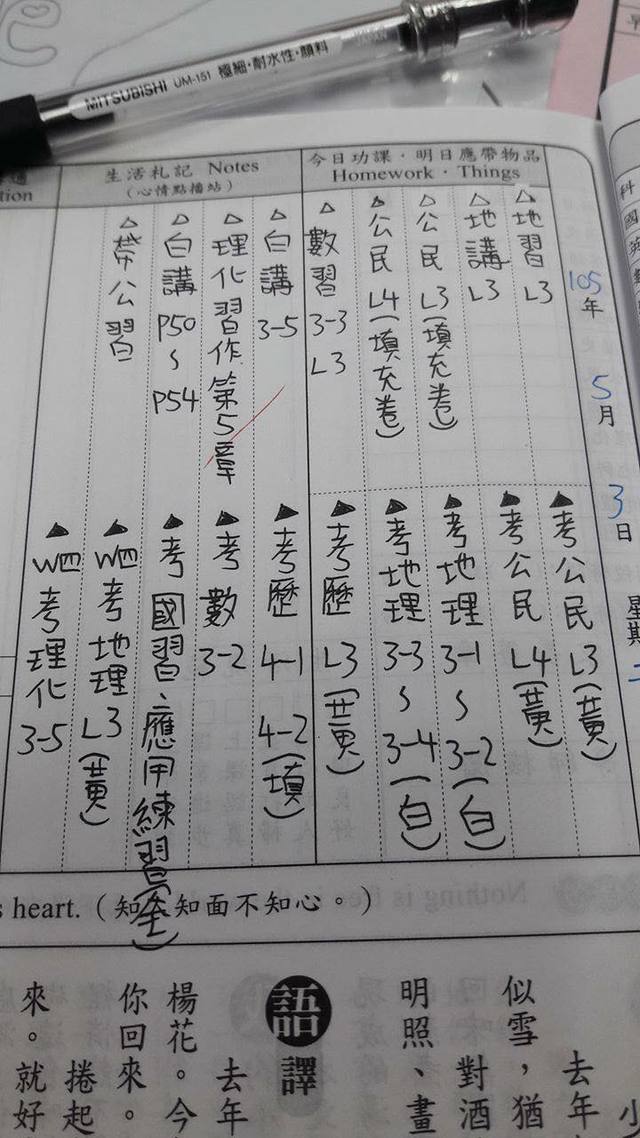 MITSUBISHI UM-151 極細・耐水性・顔料
今日功課・明日應帶物品
Homework・Things
生活札記 Notes
(心情點播站)
tion
105年5月3日
星期二
△地習 L3
△地講 L3
△公民 L3(填充卷)
△公民 L4(填充卷)
△數習 3-3 L3
△白講 3-5
△理化習作第5章
△白講 P50~P54
△帶公習
▲考公民 L3(黃)
▲考公民 L4(黃)
▲考地理 3-1~3-2(白)
▲考地理 3-3~3-4(白)
▲考歷 L3(黃)
▲考歷 4-1 4-2(填)
▲考數 3-2
▲考國習、應用練習(全)
▲W四考地理 L3(黃)
▲W四考理化 3-5
s heart.(知人知面不知心。)
語譯
去年
似雪,猶
對酒
明照、畫
去年
楊花。今
你回來。
捲起
來。就好